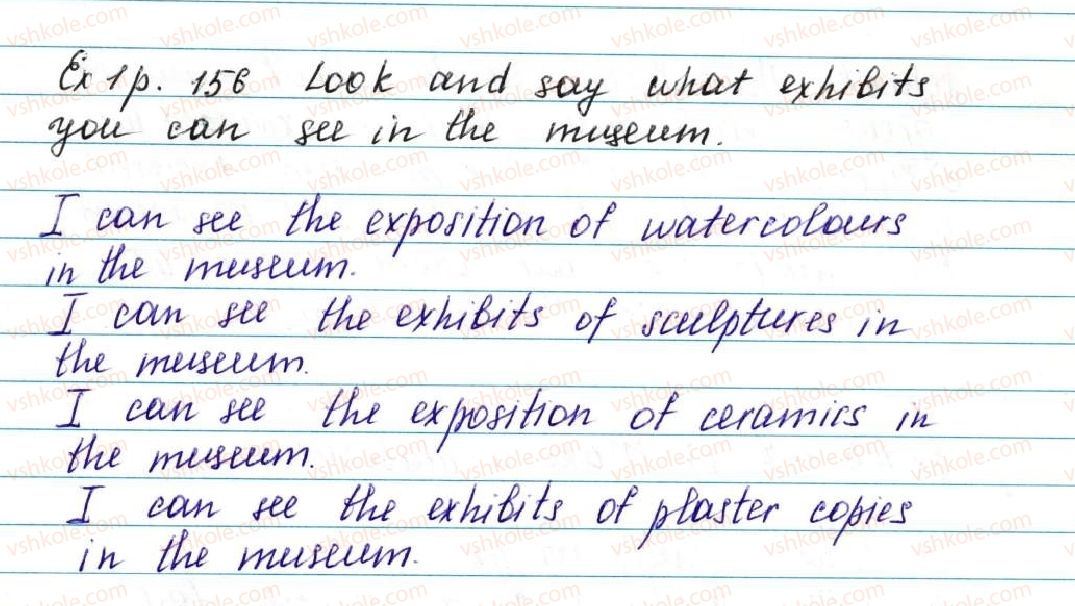 Ex 1 p. 156 Look and say what exhibits
you can see in the museum.
I can see the exposition of watercolours
in the museum.
I can see the exhibits of sculptures in
the museum.
I can see the exposition of ceramics in
the museum.
I can see the exhibits of plaster copies
in the museum.
vshkole.com